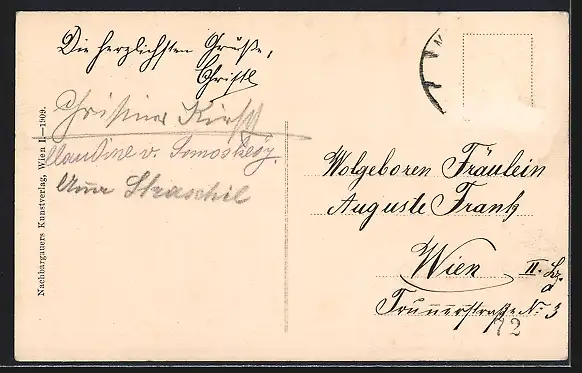 Die herzlichsten Grüße,
Christl
Christine Kirsch
Claudine v. Somoskeöy.
Anna Straschil
Nachbargauers Kunstverlag, Wien I.—1909.
Wolgeboren Fräulein
Auguste Frank
Wien II. Bz.
Trunnerstraße No. 3
72